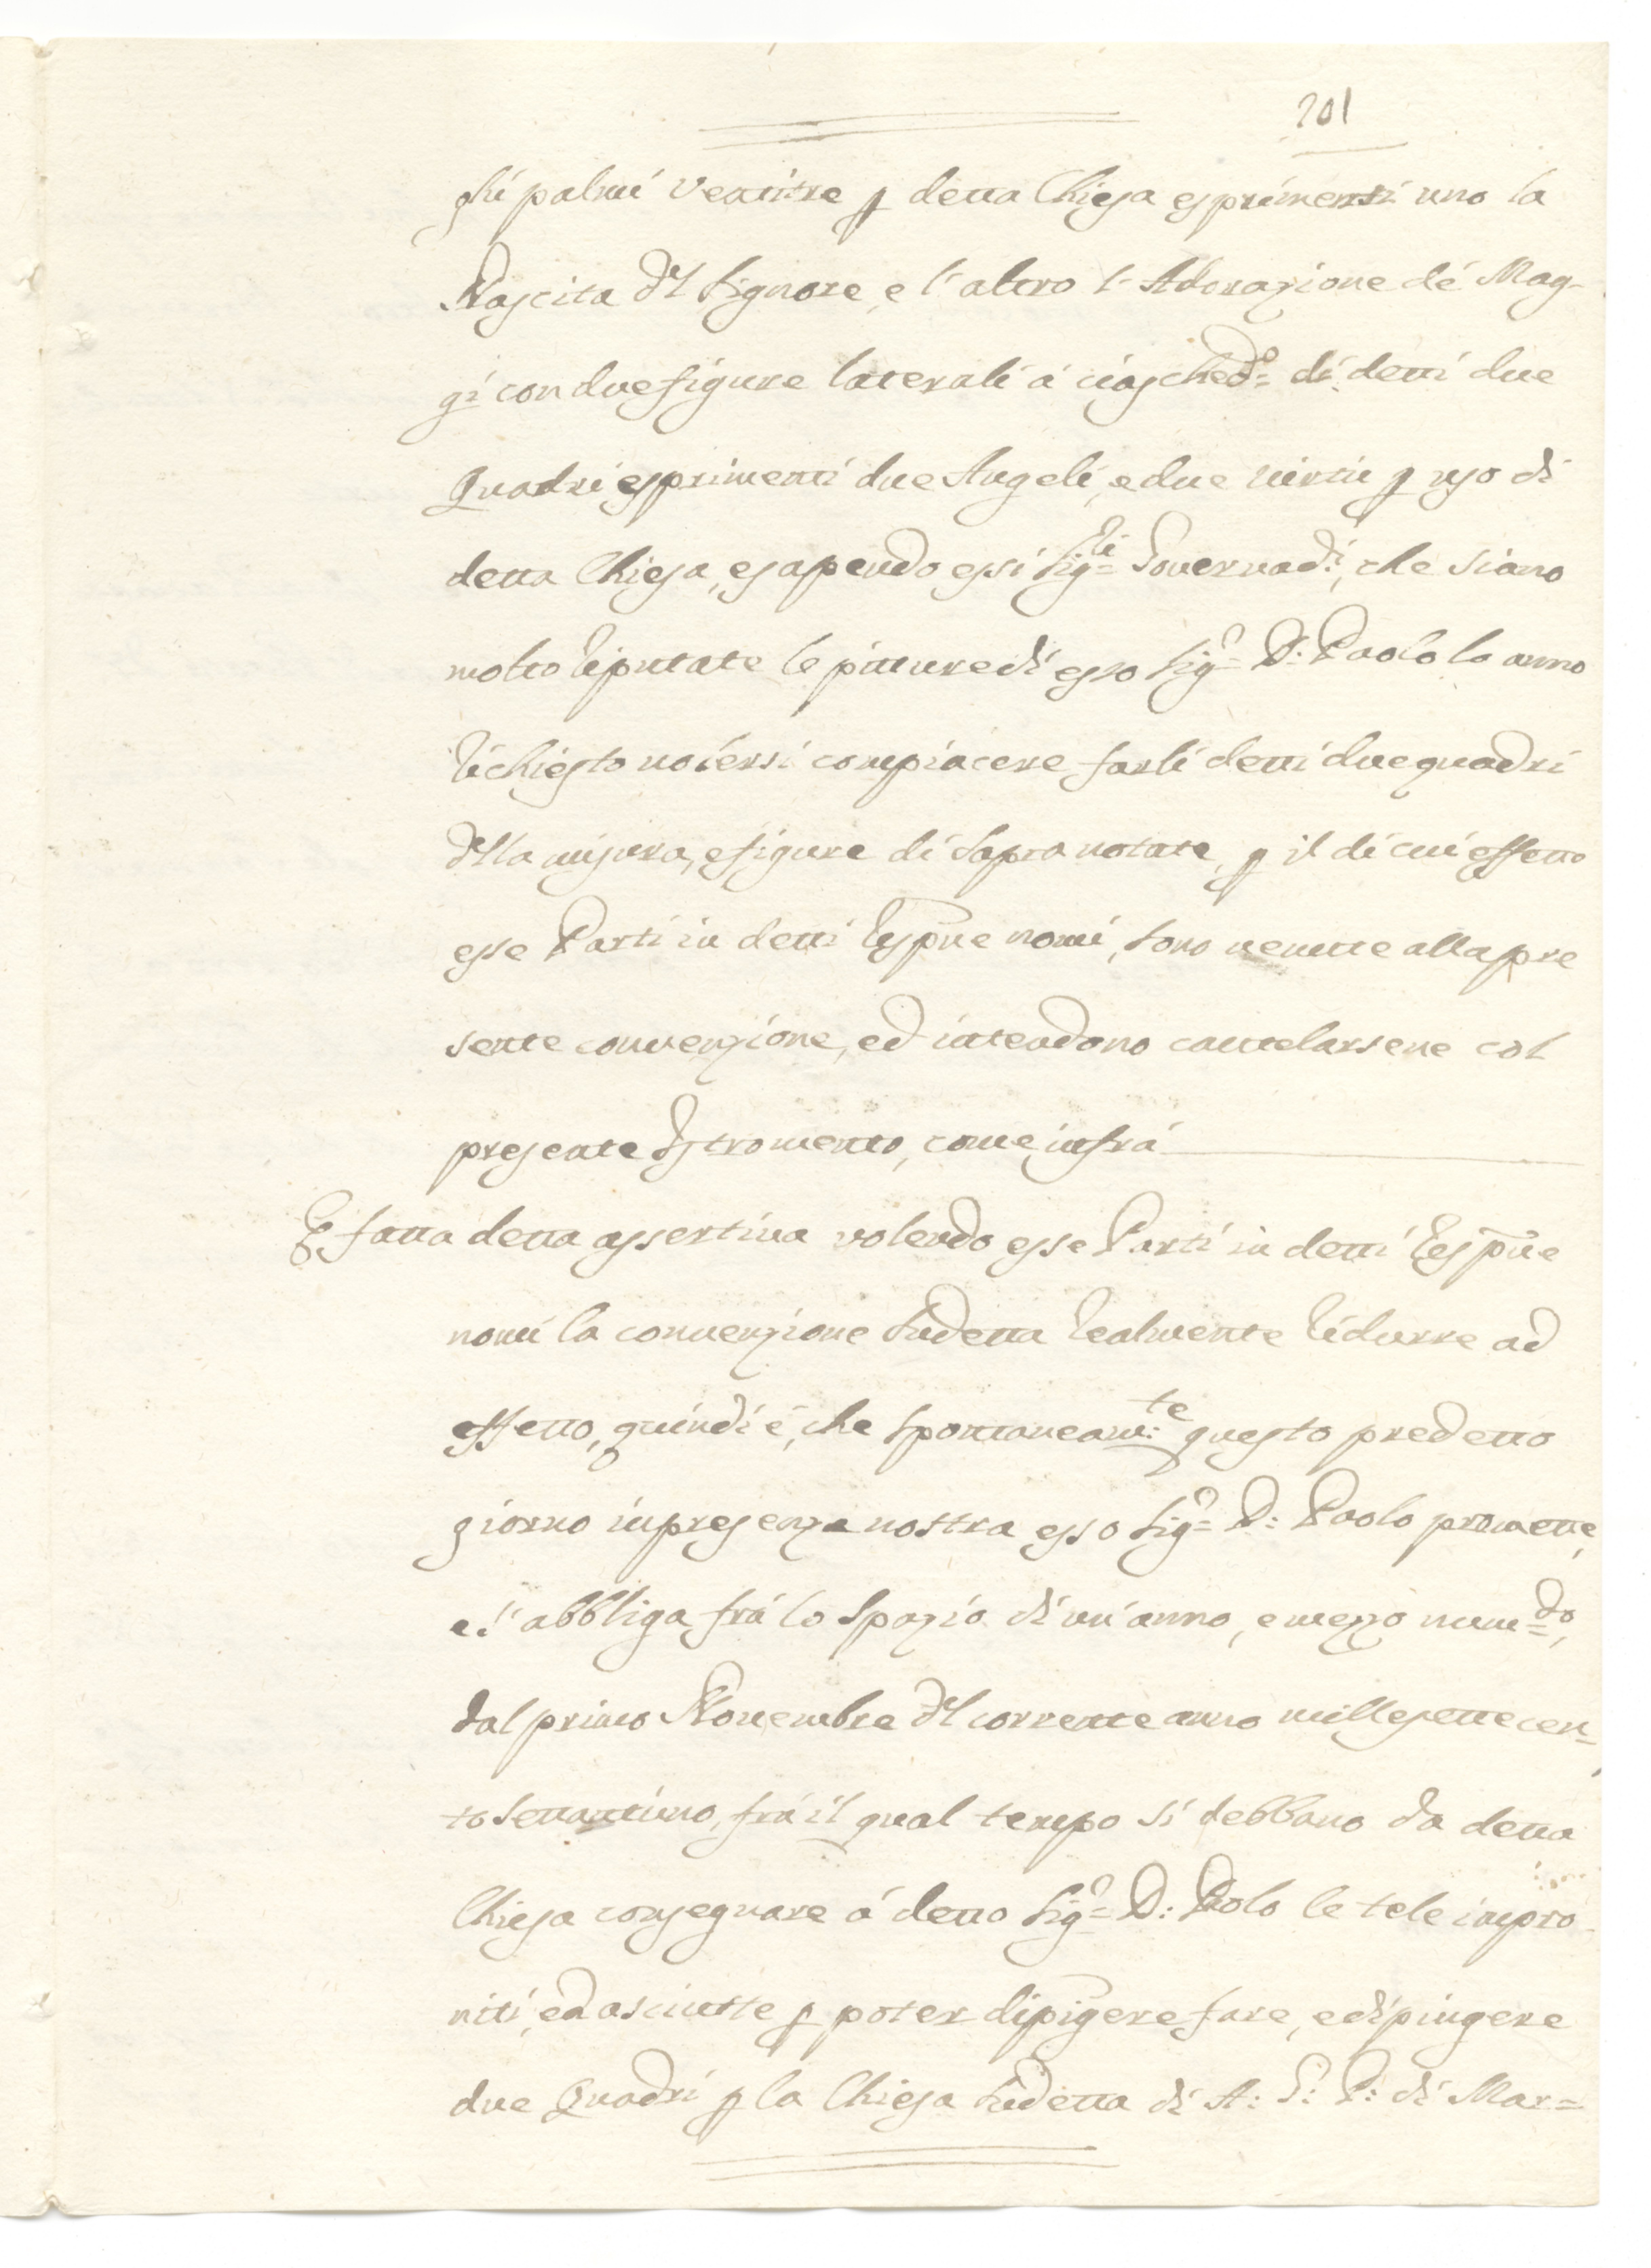 201
ghi palmi Ventitre p detta Chiesa esprimenti uno la
Nascita dl Signore, e l'altro l'Adorazione de' Mag-
gi con due figure laterali á ciasched.º di detti due
Quadri esprimenti due Angeli, e due virtù p uso di
detta Chiesa, e sapendo essi Sig.ri Governad.i, che siano
molto Riputate le pitture di esso Sig.r D: Paolo lo anno
Richiesto volersi compiacere farli detti due quadri
dlla misura, e figure di Sopra notate, p il di cui effetto
esse Parti in detti Resp̄ue nomi, sono venute alla pre
sente convenzione, ed intendono cautelarsene col
presente Istromento, come infrà
E fatta detta assertiva volendo esse Parti in detti Resp̄ue
nomi la convenzione Sudetta Realmente Ridurre ad
effetto, quindi é, che Spontaneam:te questo predetto
giorno in presenza nostra esso Sig.r D: Paolo promette,
e s'abbliga frà lo Spazio di un'anno, e mezzo num.do,
dal primo Novembre dl corrente anno millesettecen-
to Settantuno, frà il qual tempo si debbano da detta
Chiesa consegnare á detto Sig.r D: Paolo le tele impro
niti, ed asciutte p poter dipīgere fare, e dipingere
due Quadri p la Chiesa Sudetta di A: G: P: di Mar=